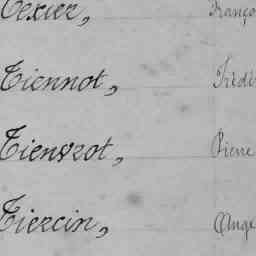 Texier, Franço
Tiennot, Frédé
Tienvrot, Pierre
Tiercin, Ange